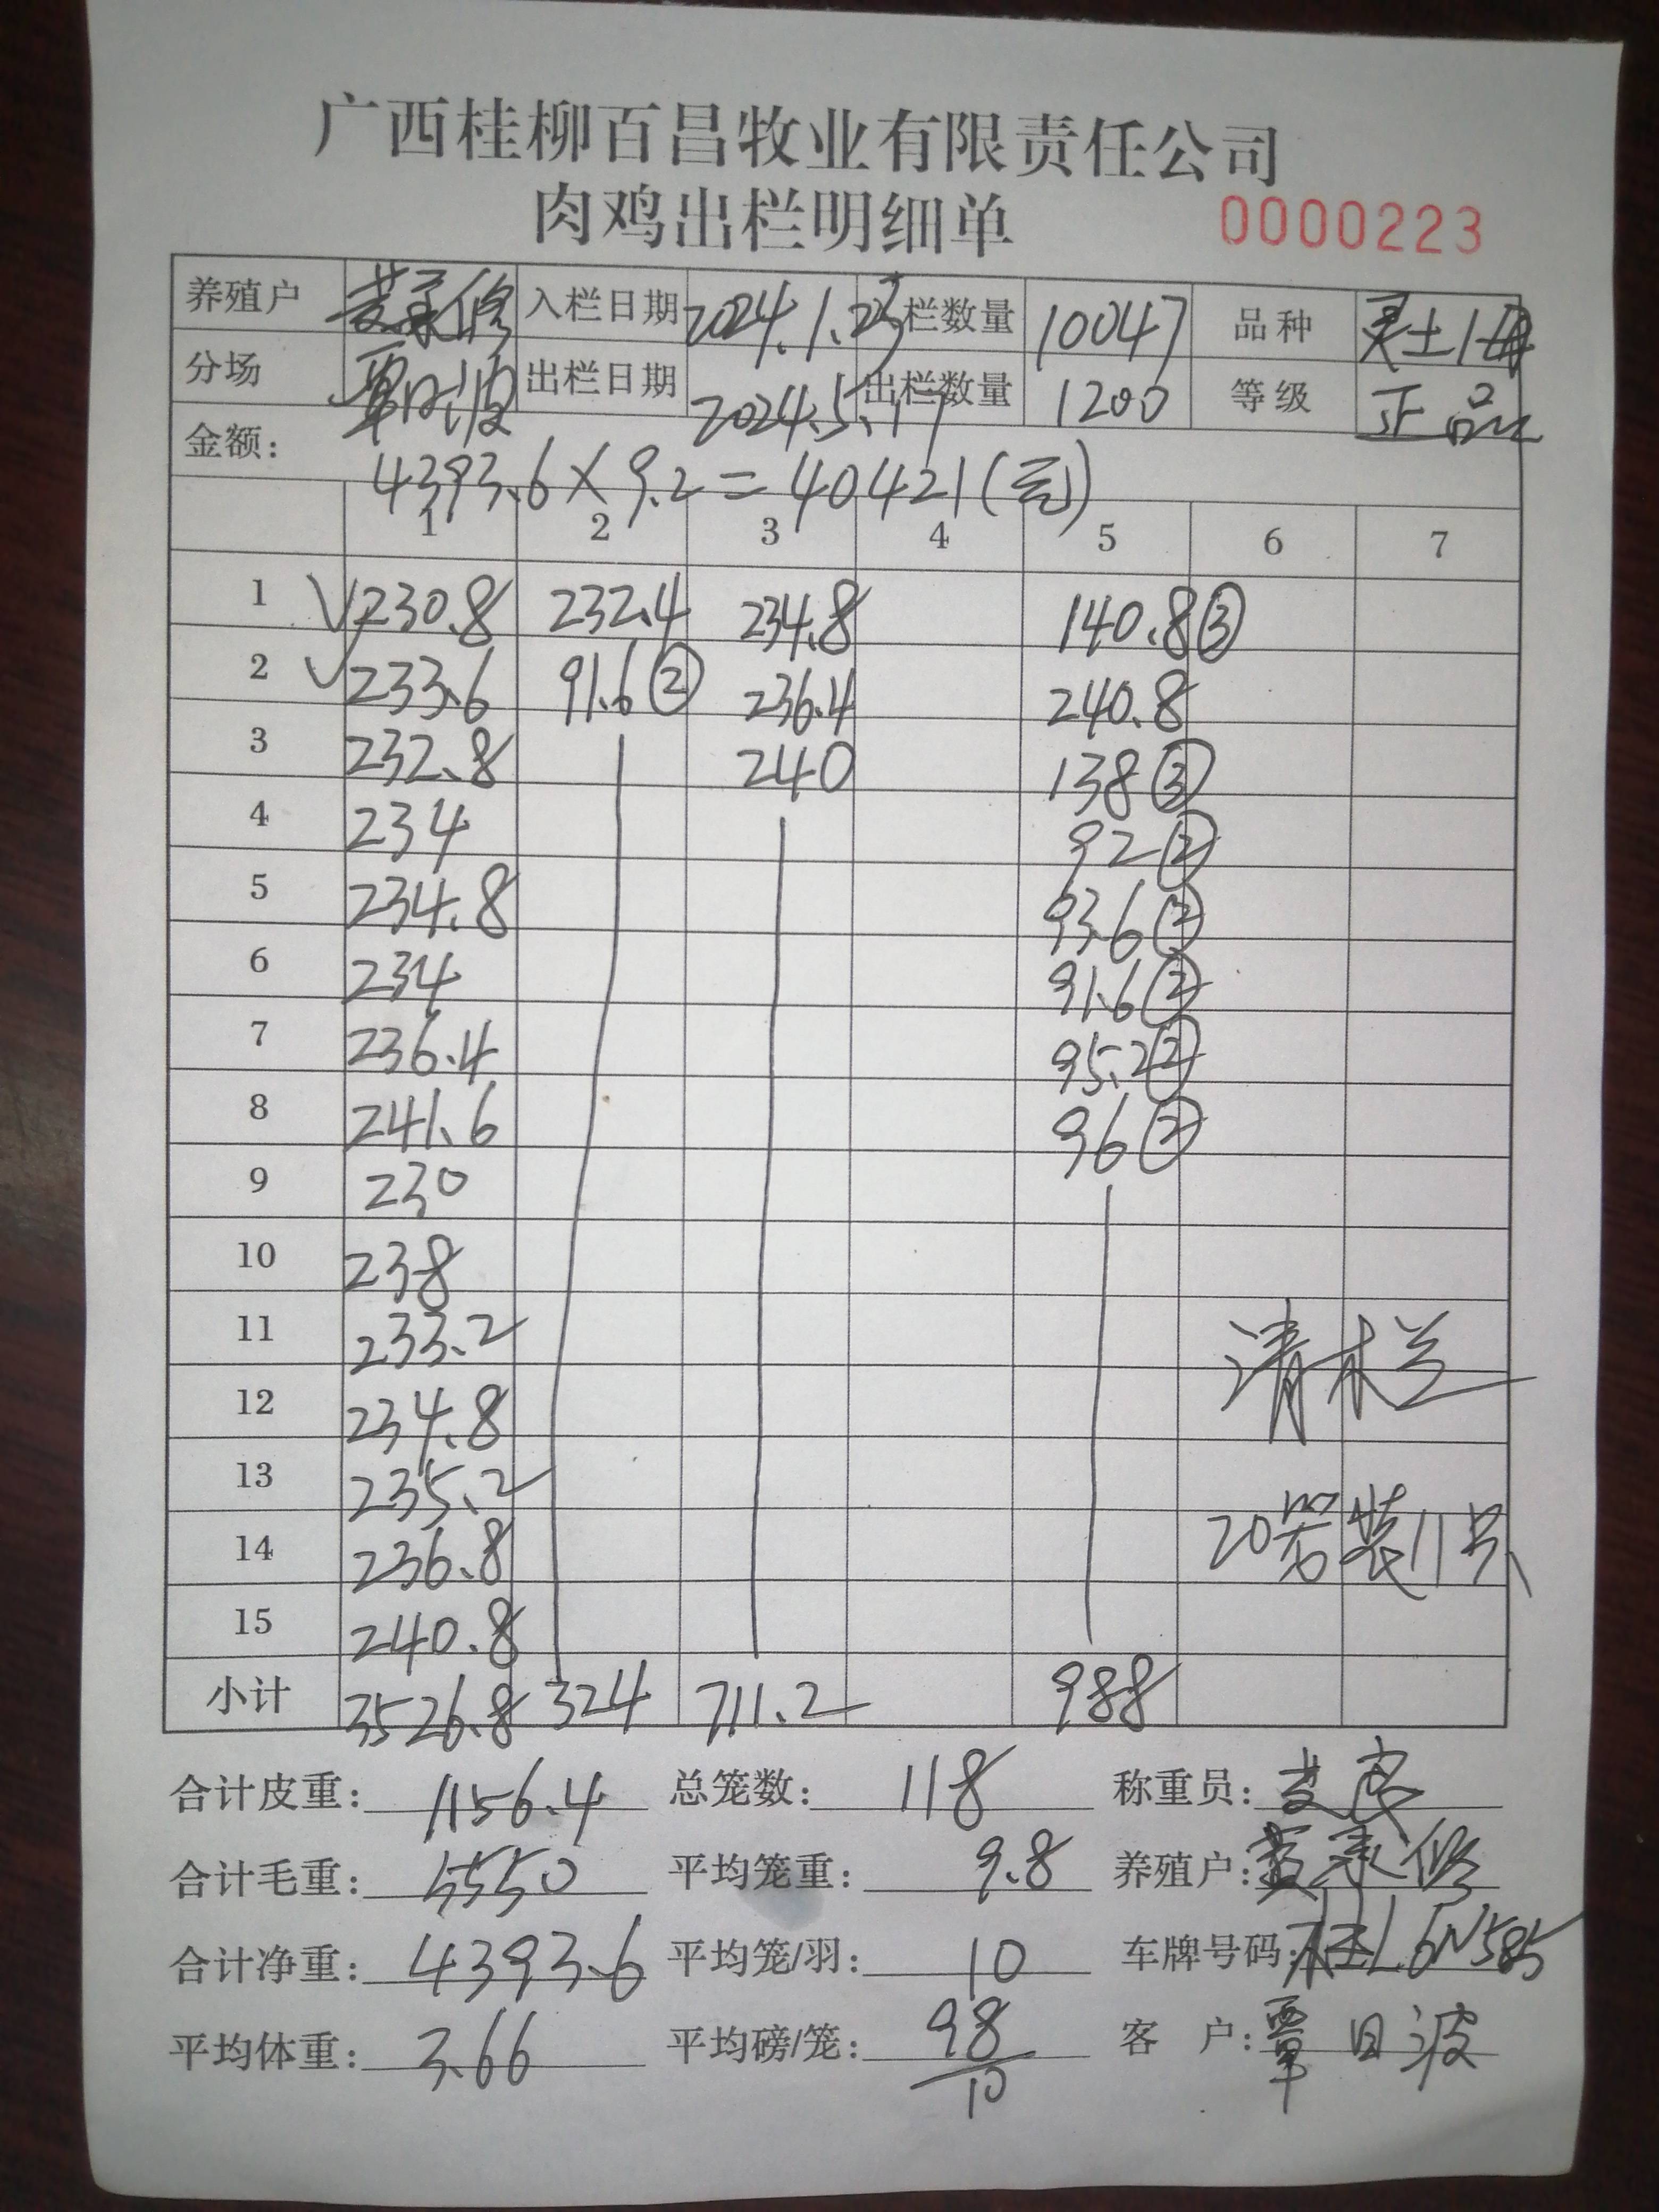 广西桂柳百昌牧业有限责任公司
肉鸡出栏明细单 0000223
养殖户 黄承修 入栏日期 2024.1.23 栏数量 10047 品种 灵土1母
分场 覃日波 出栏日期 2024.5.17 出栏数量 1200 等级 正品
金额: 4393.6×9.2=40421(元)
1 2 3 4 5 6 7
1 √230.8 232.4 234.8 140.8③
2 √233.6 91.6② 236.4 240.8
3 232.8 240 138③
4 234 92②
5 234.8 93.6②
6 234 91.6②
7 236.4 95.2②
8 241.6 96②
9 230
10 238
11 233.2 清栏
12 234.8
13 235.2
14 236.8 20笼装11只
15 240.8
小计 3526.8 324 711.2 988
合计皮重: 1156.4 总笼数: 118 称重员:
合计毛重: 5550 平均笼重: 9.8 养殖户: 黄承修
合计净重: 4393.6 平均笼/羽: 10 车牌号码: 桂L6N585
平均体重: 3.66 平均磅/笼: 98/10 客户: 覃日波